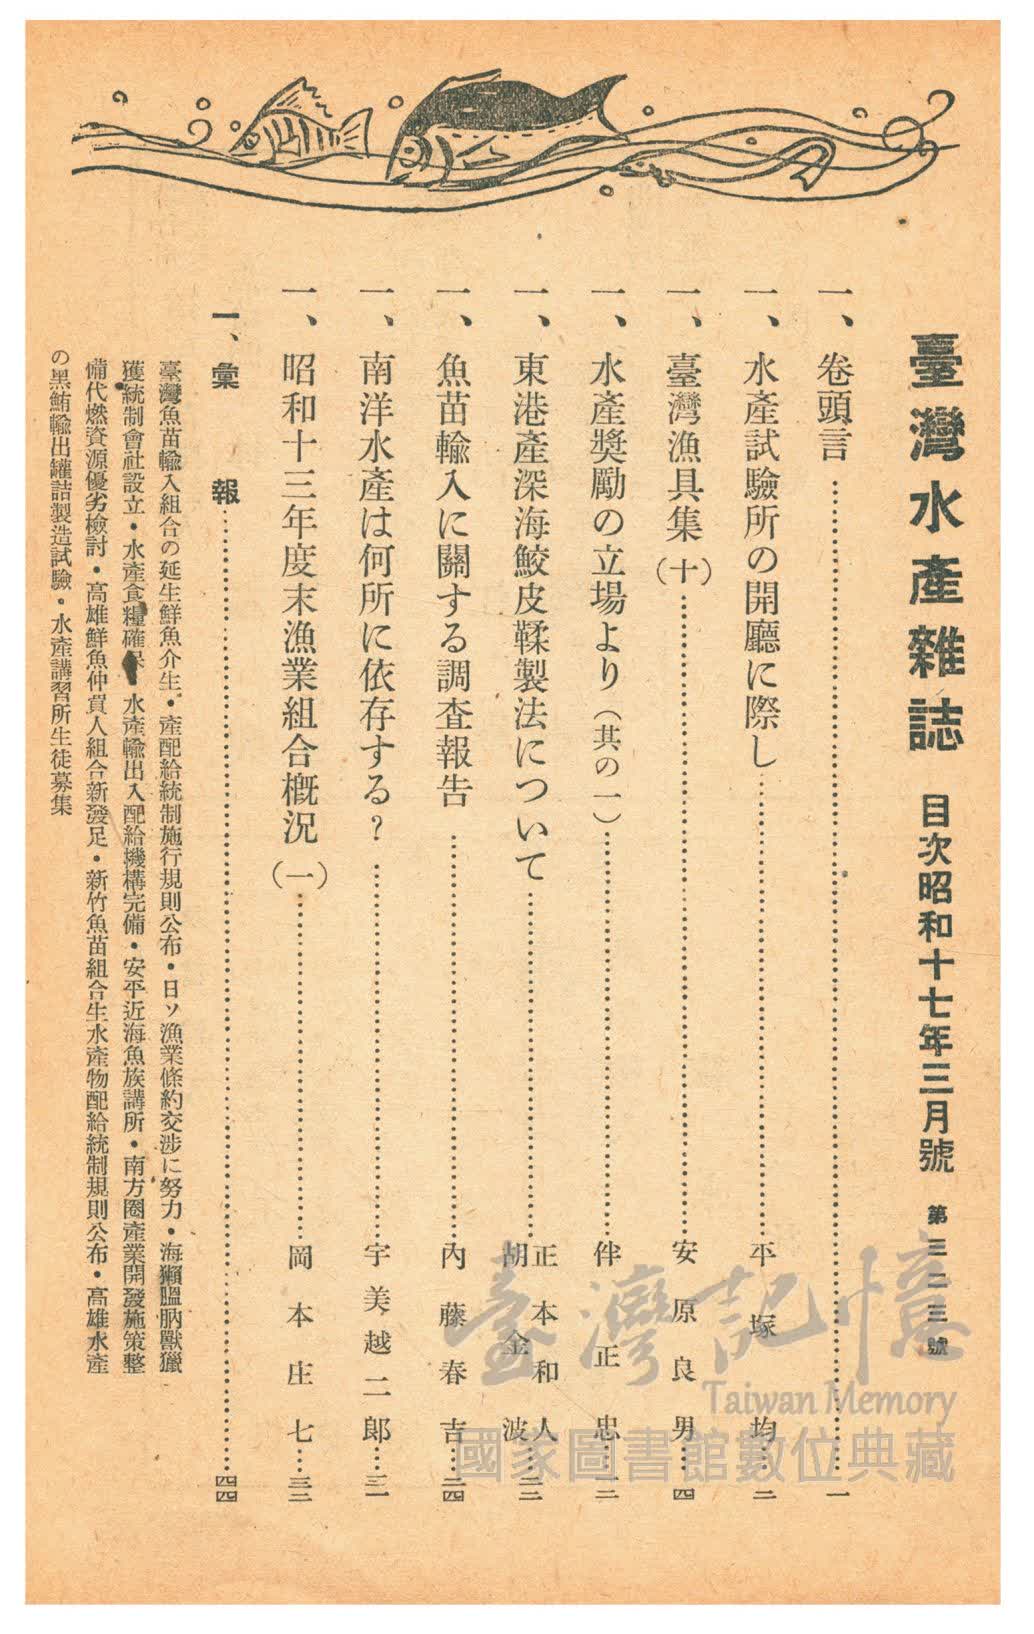 臺灣水產雜誌 目次昭和十七年三月號 第三二三號
一、卷頭言……一
一、水產試驗所の開廳に際し……平塚均…二
一、臺灣漁具集(十)……安原良男…四
一、水產獎勵の立場より(其の一)……伴正忠…
一、東港產深海鮫皮鞣製法について……正本和人 胡金波…
一、魚苗輸入に關する調査報告……內藤春吉…
一、南洋水產は何所に依存する?……宇美越二郎…三一
一、昭和十三年度末漁業組合概況(一)……岡本庄七…三二
一、彙報……四四
臺灣魚苗輸入組合の延生鮮魚介生・產配給統制施行規則公布・日ソ漁業條約交涉に努力・海獺膃肭獸獵
獲統制會社設立・水產食糧確保・水產輸出入配給機構完備・安平近海魚族講所・南方圈產業開發施策整
備代燃資源優劣檢討・高雄鮮魚仲買人組合新發足・新竹魚苗組合生水產物配給統制規則公布・高雄水產
の黑鮪輸出罐詰製造試驗・水產講習所生徒募集
臺灣記憶
Taiwan Memory
國家圖書館數位典藏